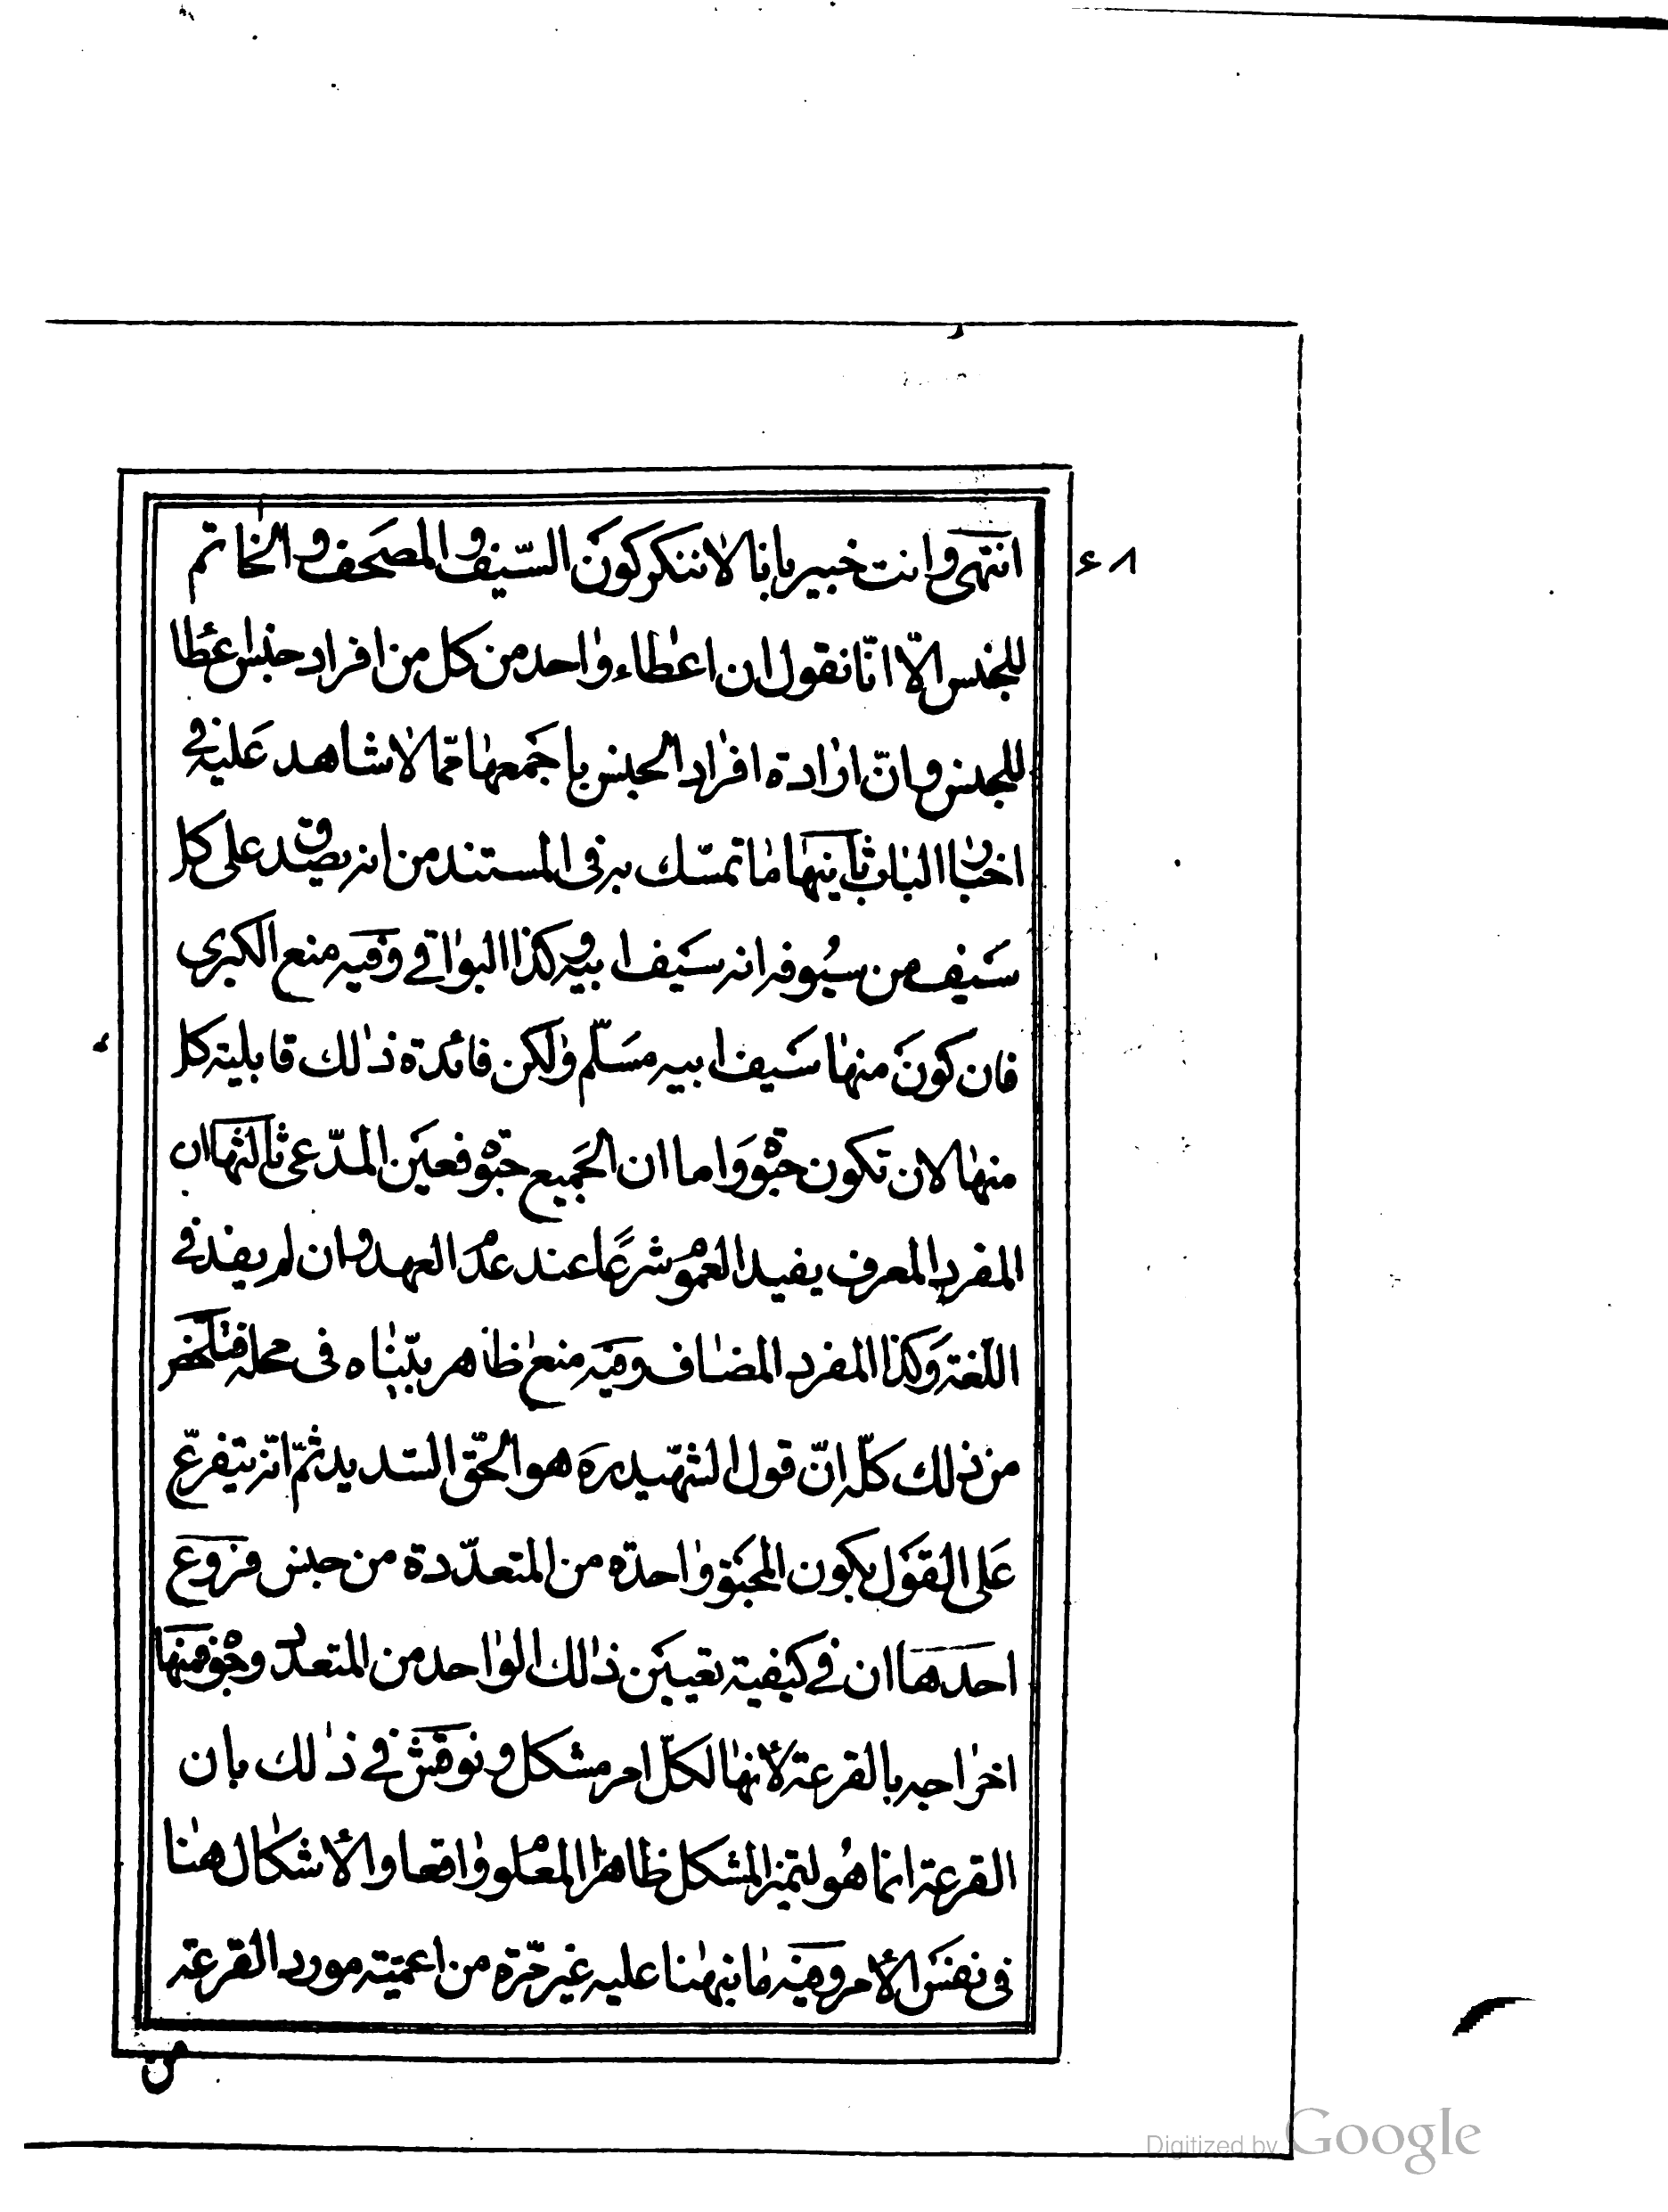 ۶۸
انتهى وانت خبير بانا لا ننكر كون السّيف والمصحف والخاتم
للجنس الّا انّا نقول ان اعطاء واحد من كل من افراد جنس اعطا
للجنس وانّ ارادة افراد الجنس باجمعها ممّا لا شاهد عليه فى
اخبار الباب ثانيها ما تمسّك به فى المستند من انه يصدق على كل
سيف من سيوفه انه سيف ابيه وكذا البواقى وفيه منع الكبرى
فان كون منها سيف ابيه مسلّم ولكن فائدة ذلك قابلية كل
منها لان تكون حبوة واما ان الجميع حبوة فعين المدّعى ثالثها ان
المفرد المعرف يفيد العموم شرعًا عند عدم العهد وان لم يفد فى
اللّغة وكذا المفرد المضاف وفيه منع ظاهر بيّناه فى محله فتلخص
من ذلك كلّه انّ قول الشهيد ره هو الحقّ السّديد ثمّ انّه يتفرّع
على القول بكون المحبوّ واحدة من المتعدّدة من جنس فروع
احدها ان فى كيفية تعيين ذلك الواحد من المتعدد وجوه منها
اخراجه بالقرعة لأنها لكلّ امر مشكل ونوقش فى ذلك بان
القرعة انما هو لتميز المشكل ظاهرا المعلوم واقعا والأشكال هنا
فى نفس الأمر وفيه ما نبهنا عليه غير مرّة من اعميّة مورد القرعة
من
Digitized by Google